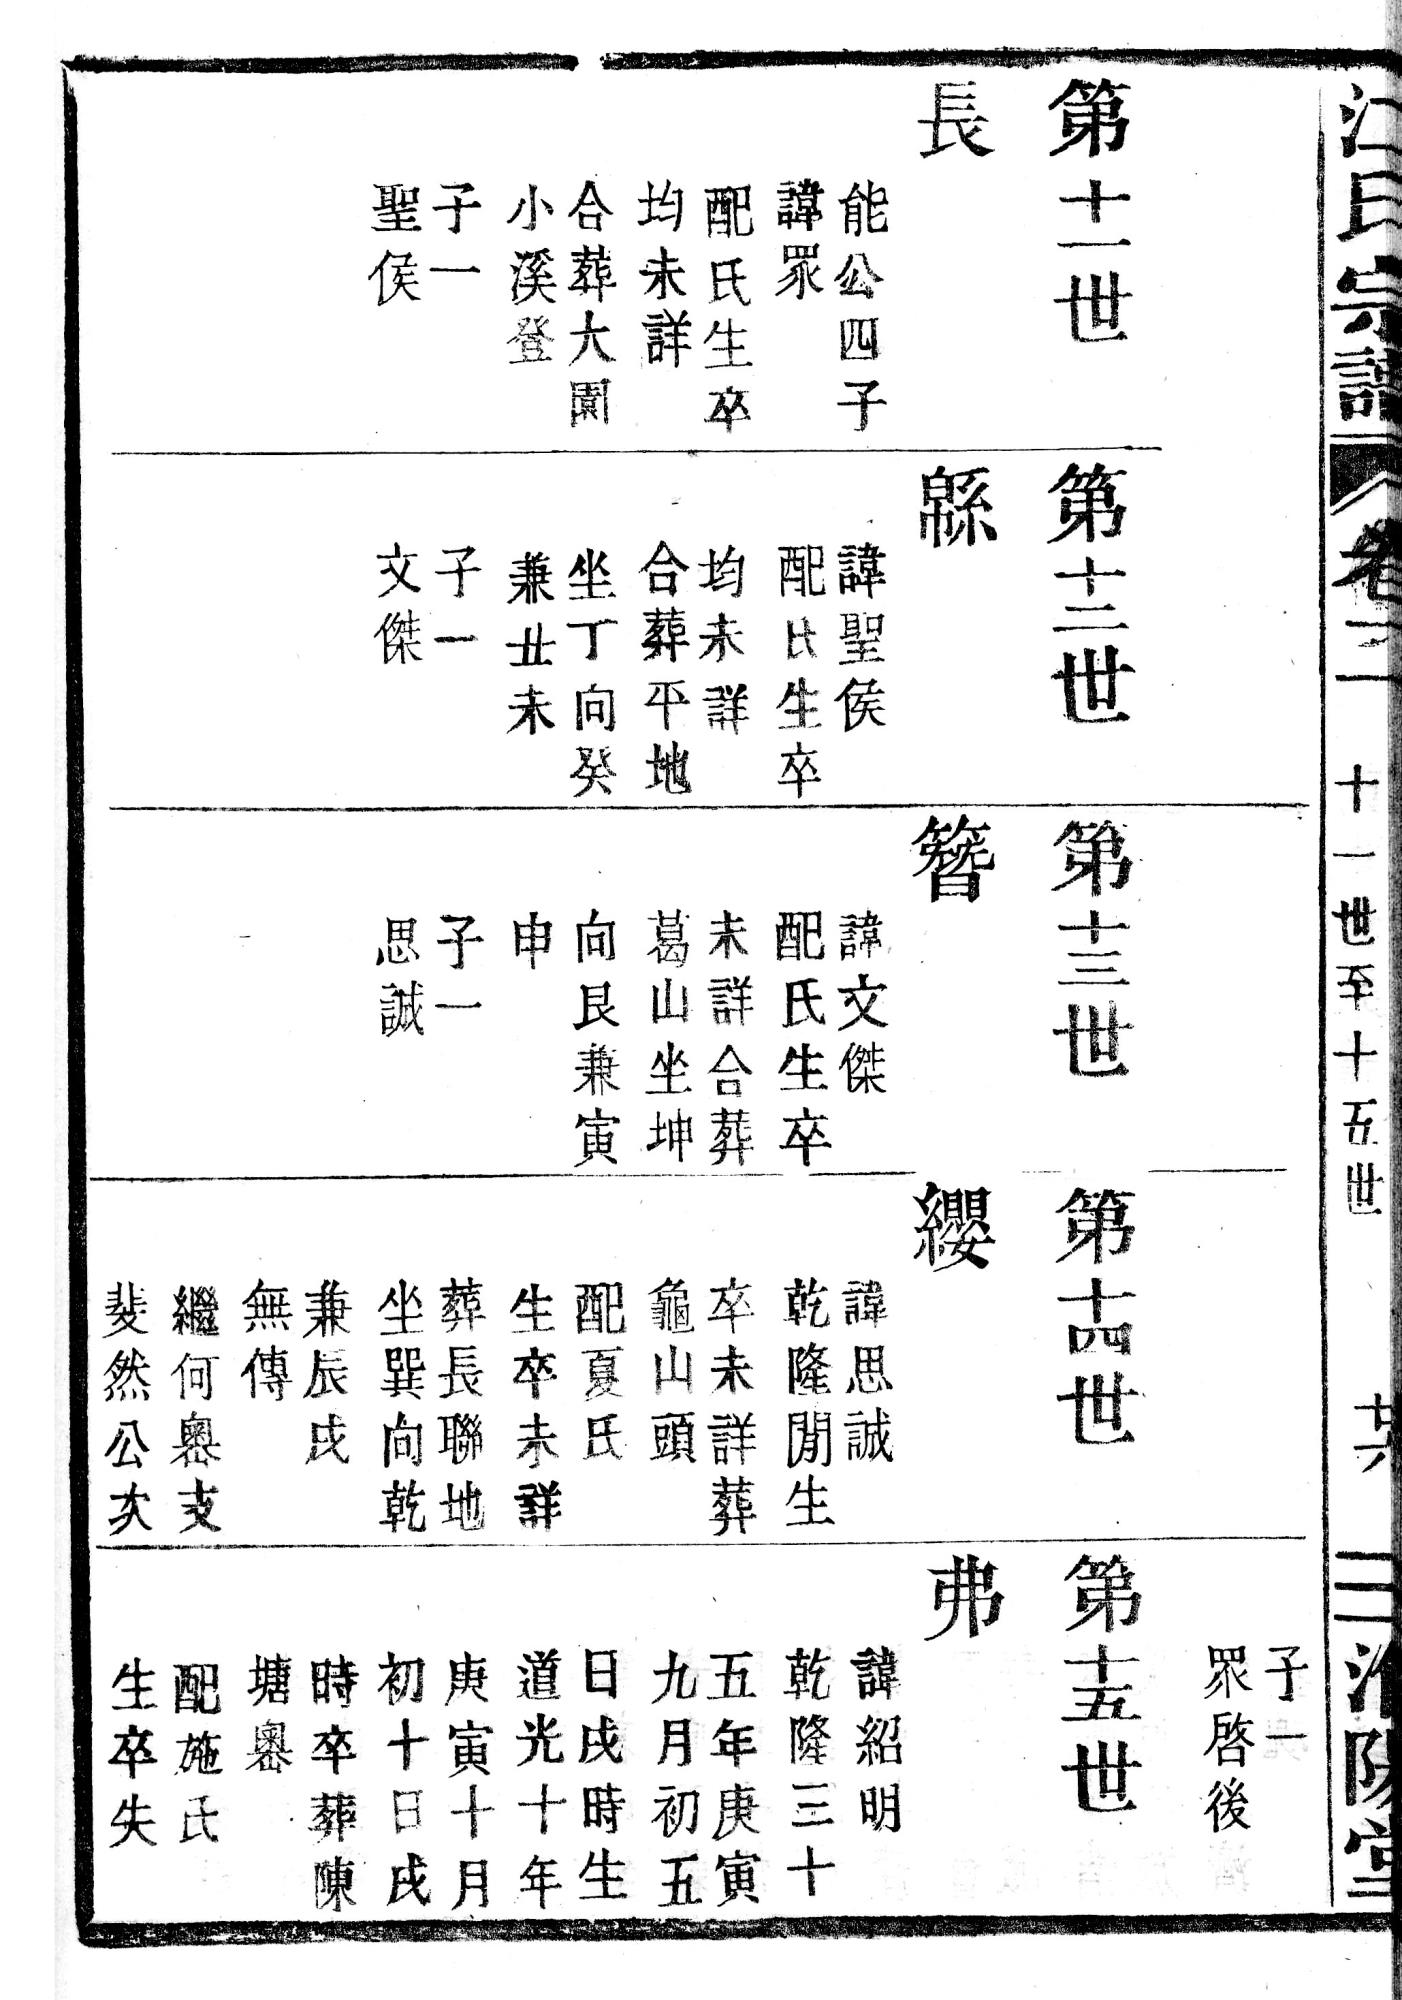 江氏宗譜
卷二
十一世至十五世
廿六
淮陽堂
子一
眾啓後
第十一世
長
能公四子
諱眾
配氏生卒
均未詳
合葬大園
小溪登
子一
聖侯
第十二世
緜
諱聖侯
配氏生卒
均未詳
合葬平地
坐丁向癸
兼丑未
子一
文傑
第十三世
簪
諱文傑
配氏生卒
未詳合葬
葛山坐坤
向艮兼寅
申
子一
思誠
第十四世
纓
諱思誠
乾隆閒生
卒未詳葬
龜山頭
配夏氏
生卒未詳
葬長聯地
坐巽向乾
兼辰戌
無傳
繼何嶴支
斐然公次
第十五世
弗
諱紹明
乾隆三十
五年庚寅
九月初五
日戌時生
道光十年
庚寅十月
初十日戌
時卒葬陳
塘嶴
配施氏
生卒失